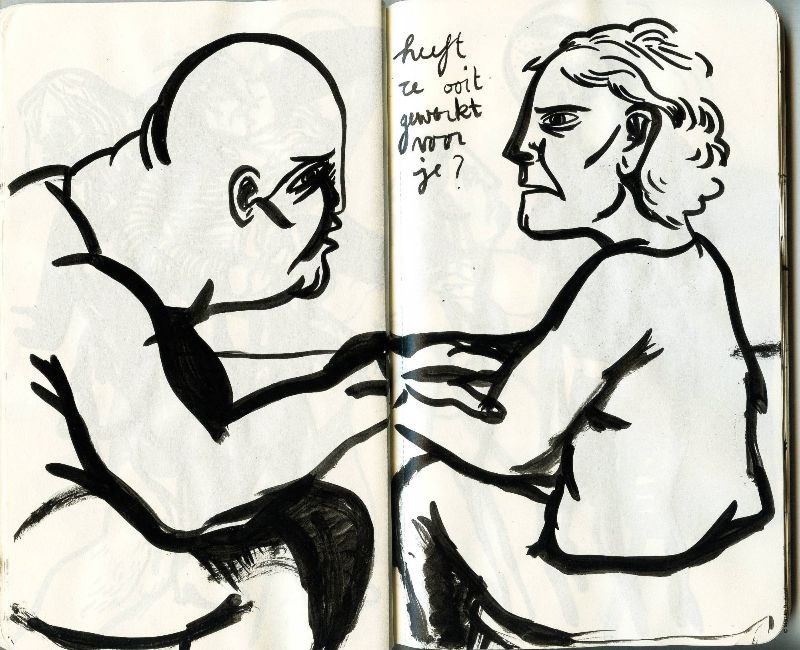 heeft
ze ooit
gewerkt
voor
je?